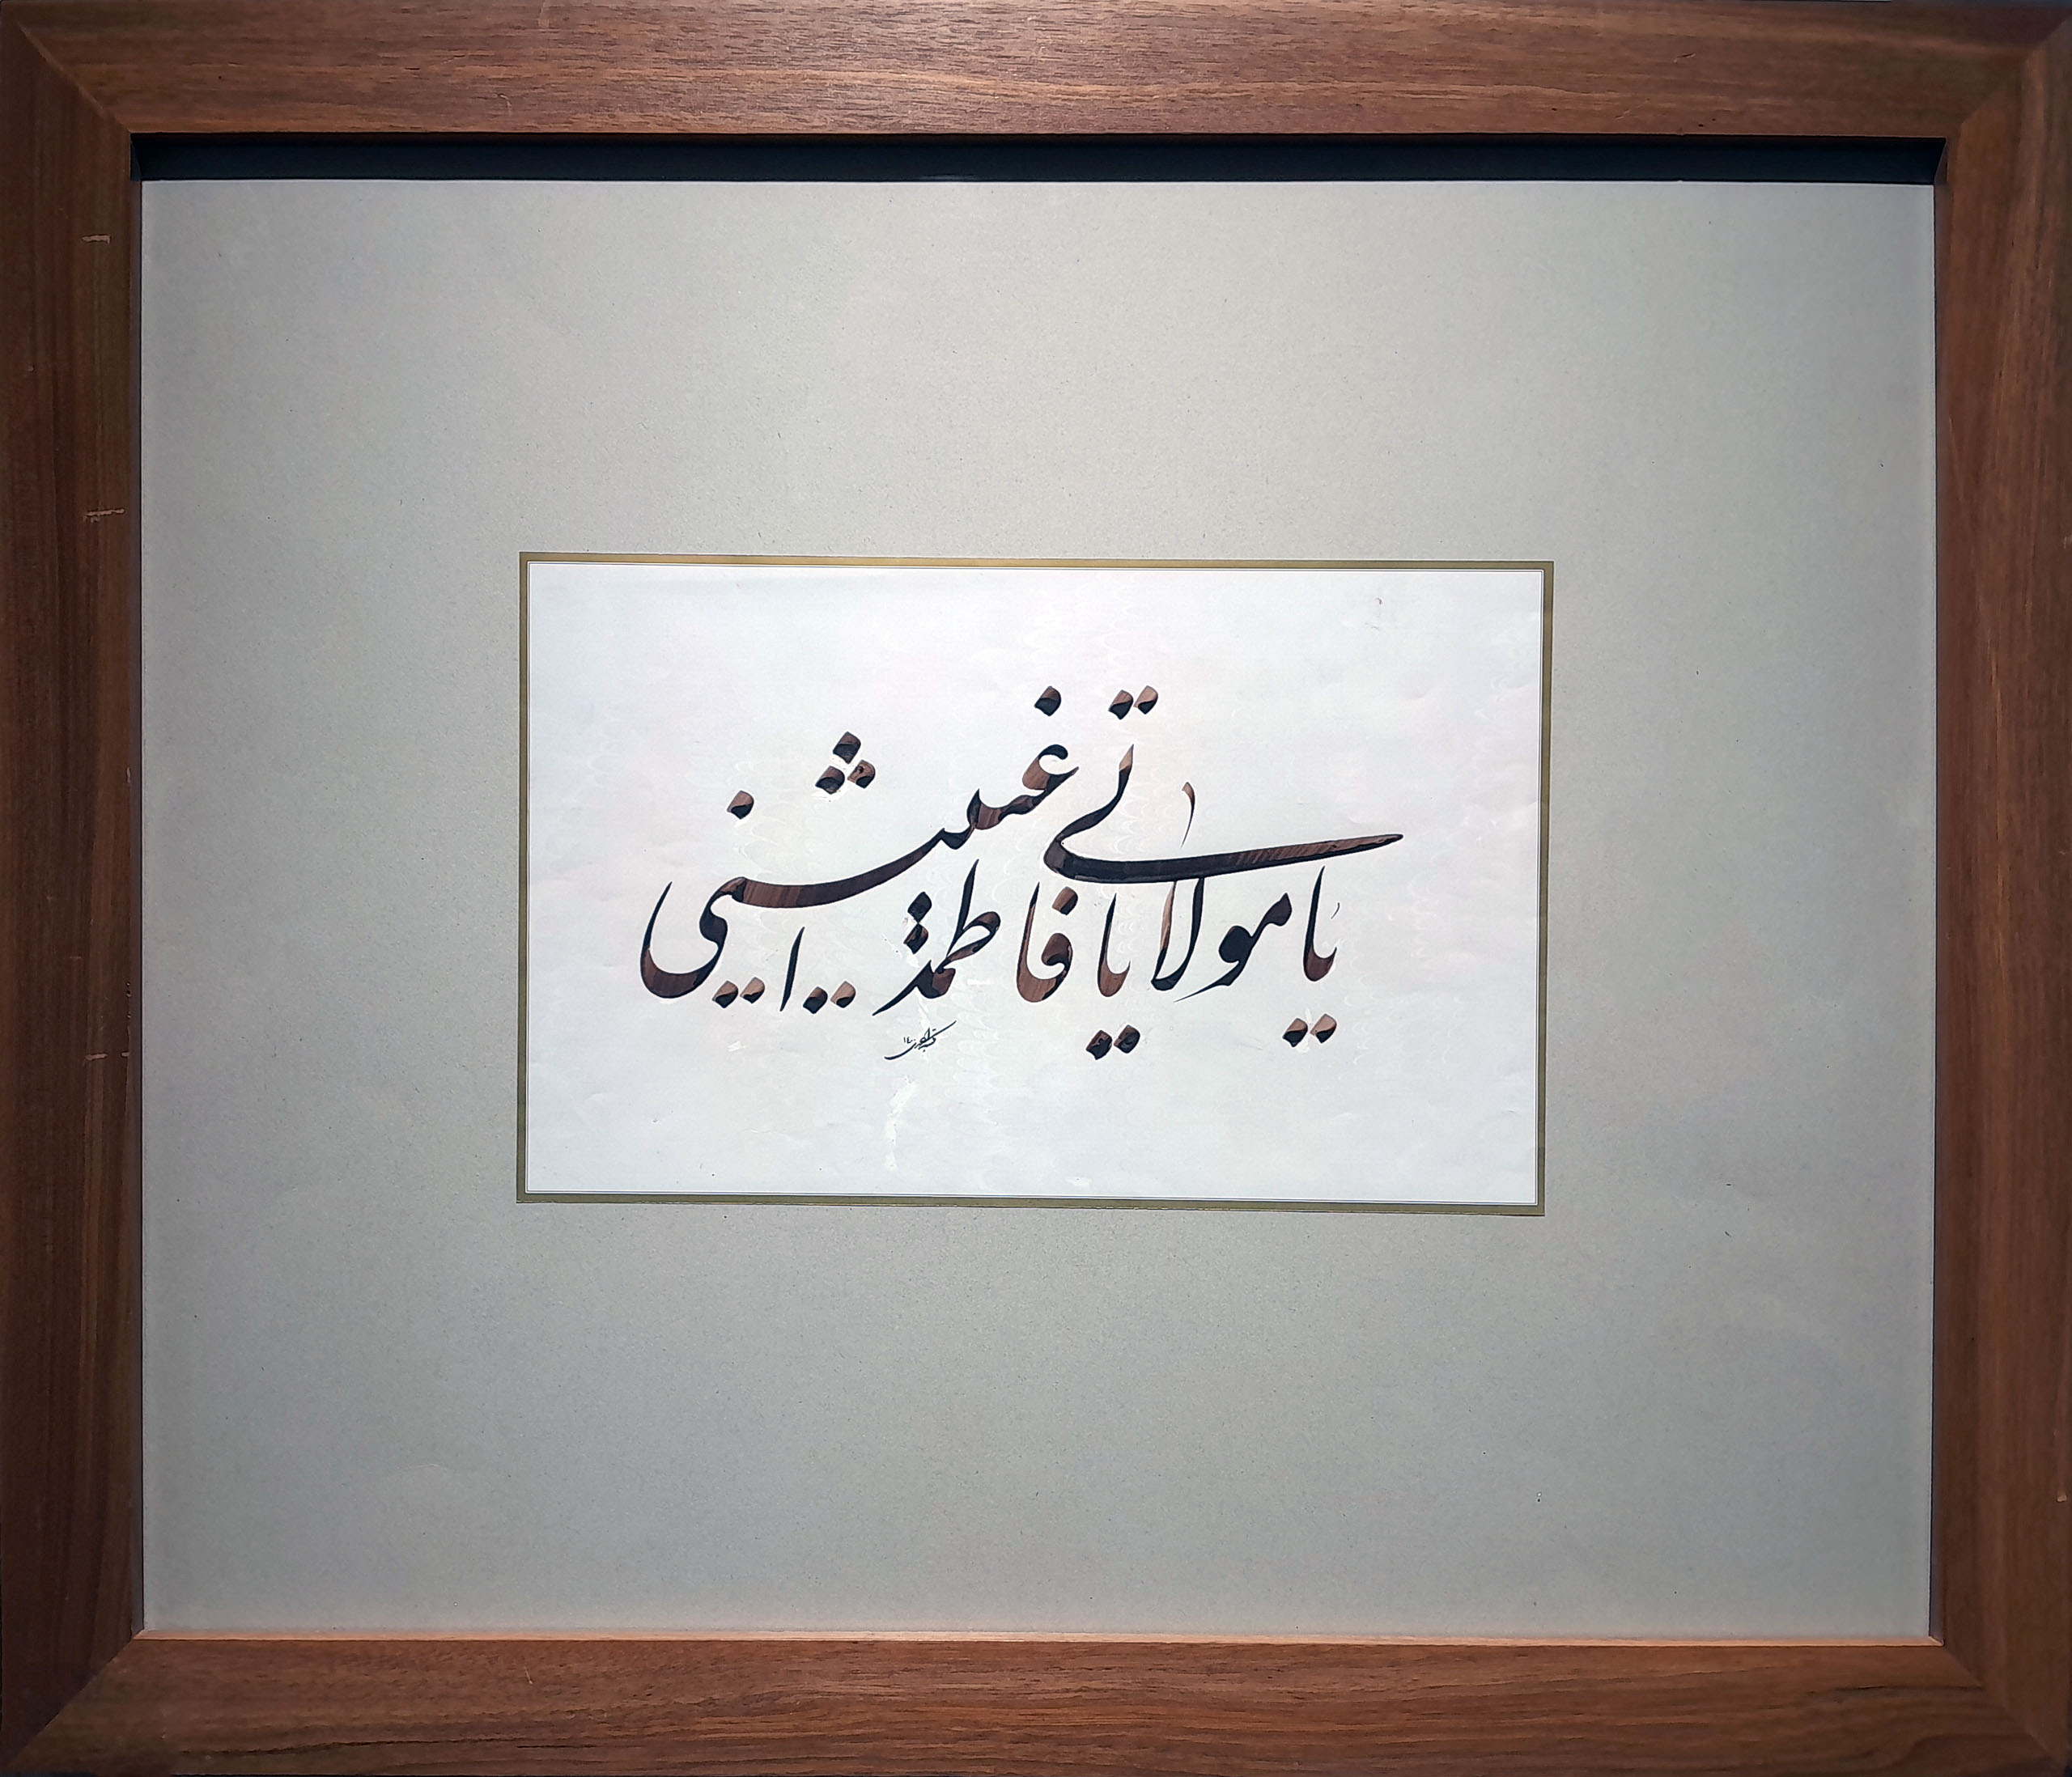 یا مولاتی یا فاطمة اغیثینی